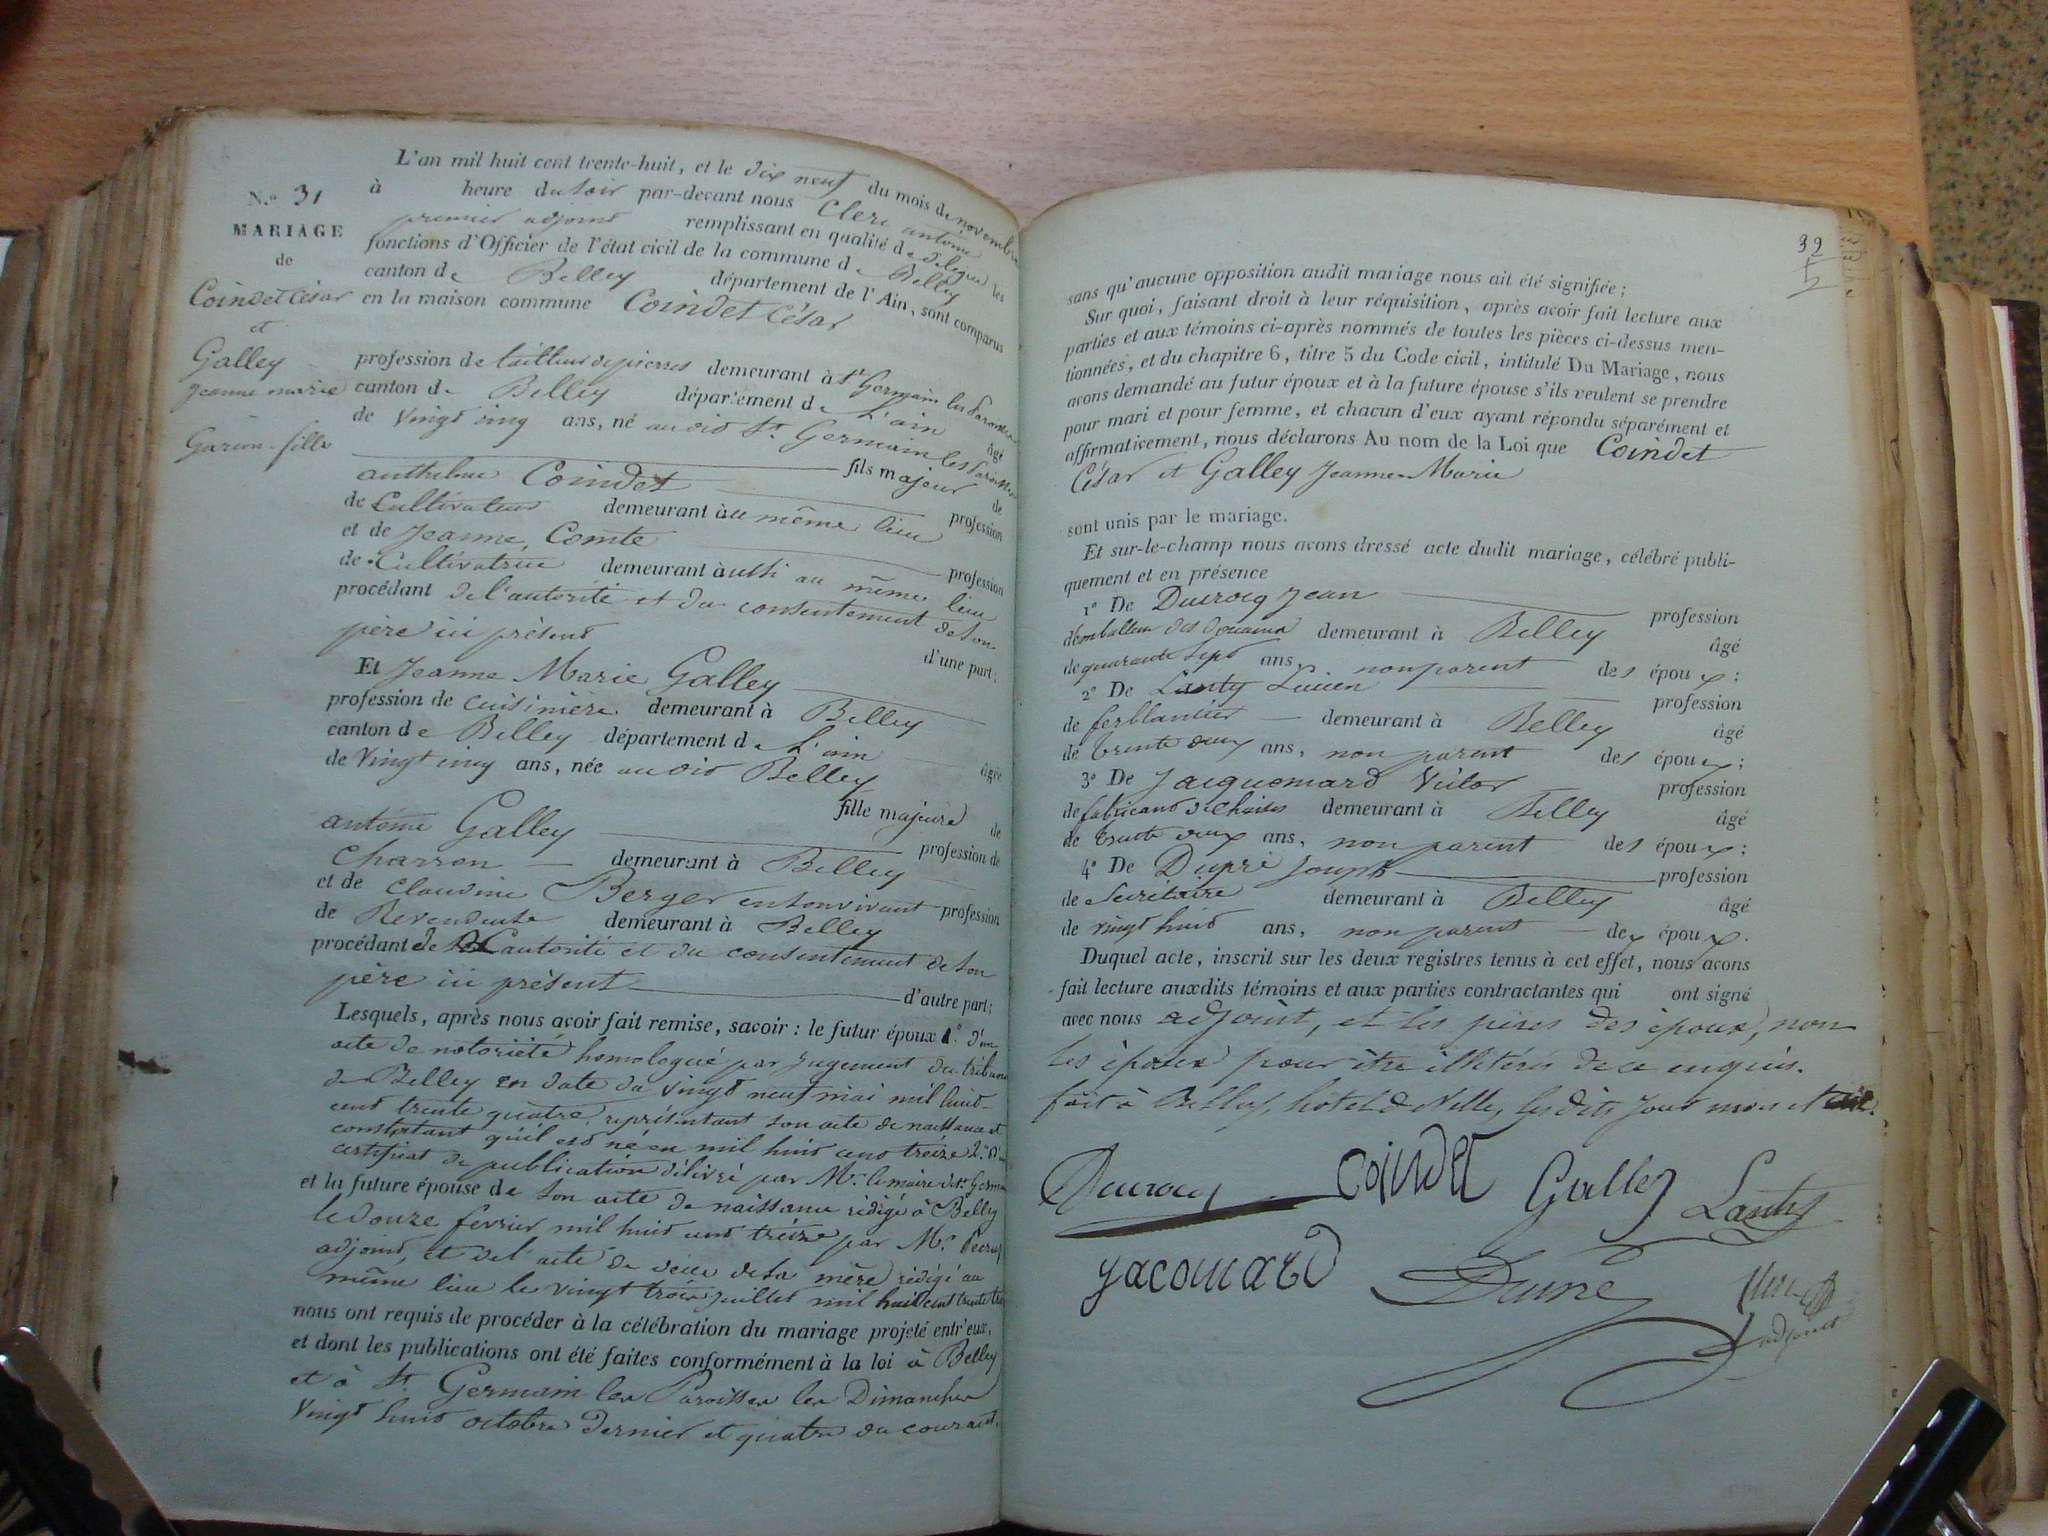 N.° 31
MARIAGE
de
Coindet César
et
Galley
Jeanne marie
Garçon-fille
L'an mil huit cent trente-huit, et le dix neuf du mois de novembre
à heure du soir par-devant nous Clerc antoine
premier adjoint remplissant en qualité de délégué les
fonctions d'Officier de l'état civil de la commune de Belley
canton de Belley département de l'Ain, sont comparus
en la maison commune Coindet César
profession de tailleur de pierres demeurant à St Germain les Paroisses
canton de Belley département de L'ain âgé
de vingt cinq ans, né audit St Germain les Paroisses
fils majeur de
anthelme Coindet profession
de Cultivateur demeurant à au même lieu
et de Jeanne Comte profession
de Cultivatrice demeurant à ussi au même lieu
procédant de l'autorité et du consentement de son
père ici présent d'une part;
Et Jeanne Marie Galley
profession de cuisinière demeurant à Belley
canton de Belley département de L'ain âgée
de vingt cinq ans, née audit Belley
fille majeure de
antoine Galley profession de
Charron demeurant à Belley
et de claudine Berger en son vivant profession
de Revendeuse demeurant à Belley
procédant de l'autorité et du consentement de son
père ici présent d'autre part;
Lesquels, après nous avoir fait remise, savoir : le futur époux 1.° d'un
acte de notoriété homologué par jugement du tribunal
de Belley en date du vingt neuf mai mil huit
cent trente quatre, représentant son acte de naissance et
constatant qu'il est né en mil huit cent treize 2.° d'un
certificat de publication délivré par Mr. le maire de St Germain
et la future épouse de son acte de naissance rédigé à Belley
le douze février mil huit cent treize par Mr.
adjoint, et de l'acte de décès de sa mère rédigé au
même lieu le vingt trois juillet mil huit cent trente
nous ont requis de procéder à la célébration du mariage projeté entr'eux,
et dont les publications ont été faites conformément à la loi à Belley
et à St Germain les Paroisses les Dimanches
vingt huit octobre dernier et quatre du courant.
32
sans qu'aucune opposition audit mariage nous ait été signifiée;
Sur quoi, faisant droit à leur réquisition, après avoir fait lecture aux
parties et aux témoins ci-après nommés de toutes les pièces ci-dessus men-
tionnées, et du chapitre 6, titre 5 du Code civil, intitulé Du Mariage, nous
avons demandé au futur époux et à la future épouse s'ils veulent se prendre
pour mari et pour femme, et chacun d'eux ayant répondu séparément et
affirmativement, nous déclarons Au nom de la Loi que Coindet
César et Galley Jeanne Marie
sont unis par le mariage.
Et sur-le-champ nous avons dressé acte dudit mariage, célébré publi-
quement et en présence
1° De Ducrocq Jean profession
d'emballeur des douanes demeurant à Belley âgé
de quarante sept ans, non parent des époux;
2° De Lanty Lucien profession
de ferblantier demeurant à Belley âgé
de trente deux ans, non parent des époux;
3° De Jacquemard Victor profession
de fabricant de chaises demeurant à Belley âgé
de trente deux ans, non parent des époux;
4° De Dupré Joseph profession
de Secrétaire demeurant à Belley âgé
de vingt huit ans, non parent des époux.
Duquel acte, inscrit sur les deux registres tenus à cet effet, nous avons
fait lecture auxdits témoins et aux parties contractantes qui ont signé
avec nous adjoint, et les pères des époux, non
les époux pour être illitérés de ce enquis.
fait à Belley, hôtel de Ville, les dits jour mois et an.
Ducrocq Coindet Galley Lanty
Jacomard Dupré Clerc
adjoint